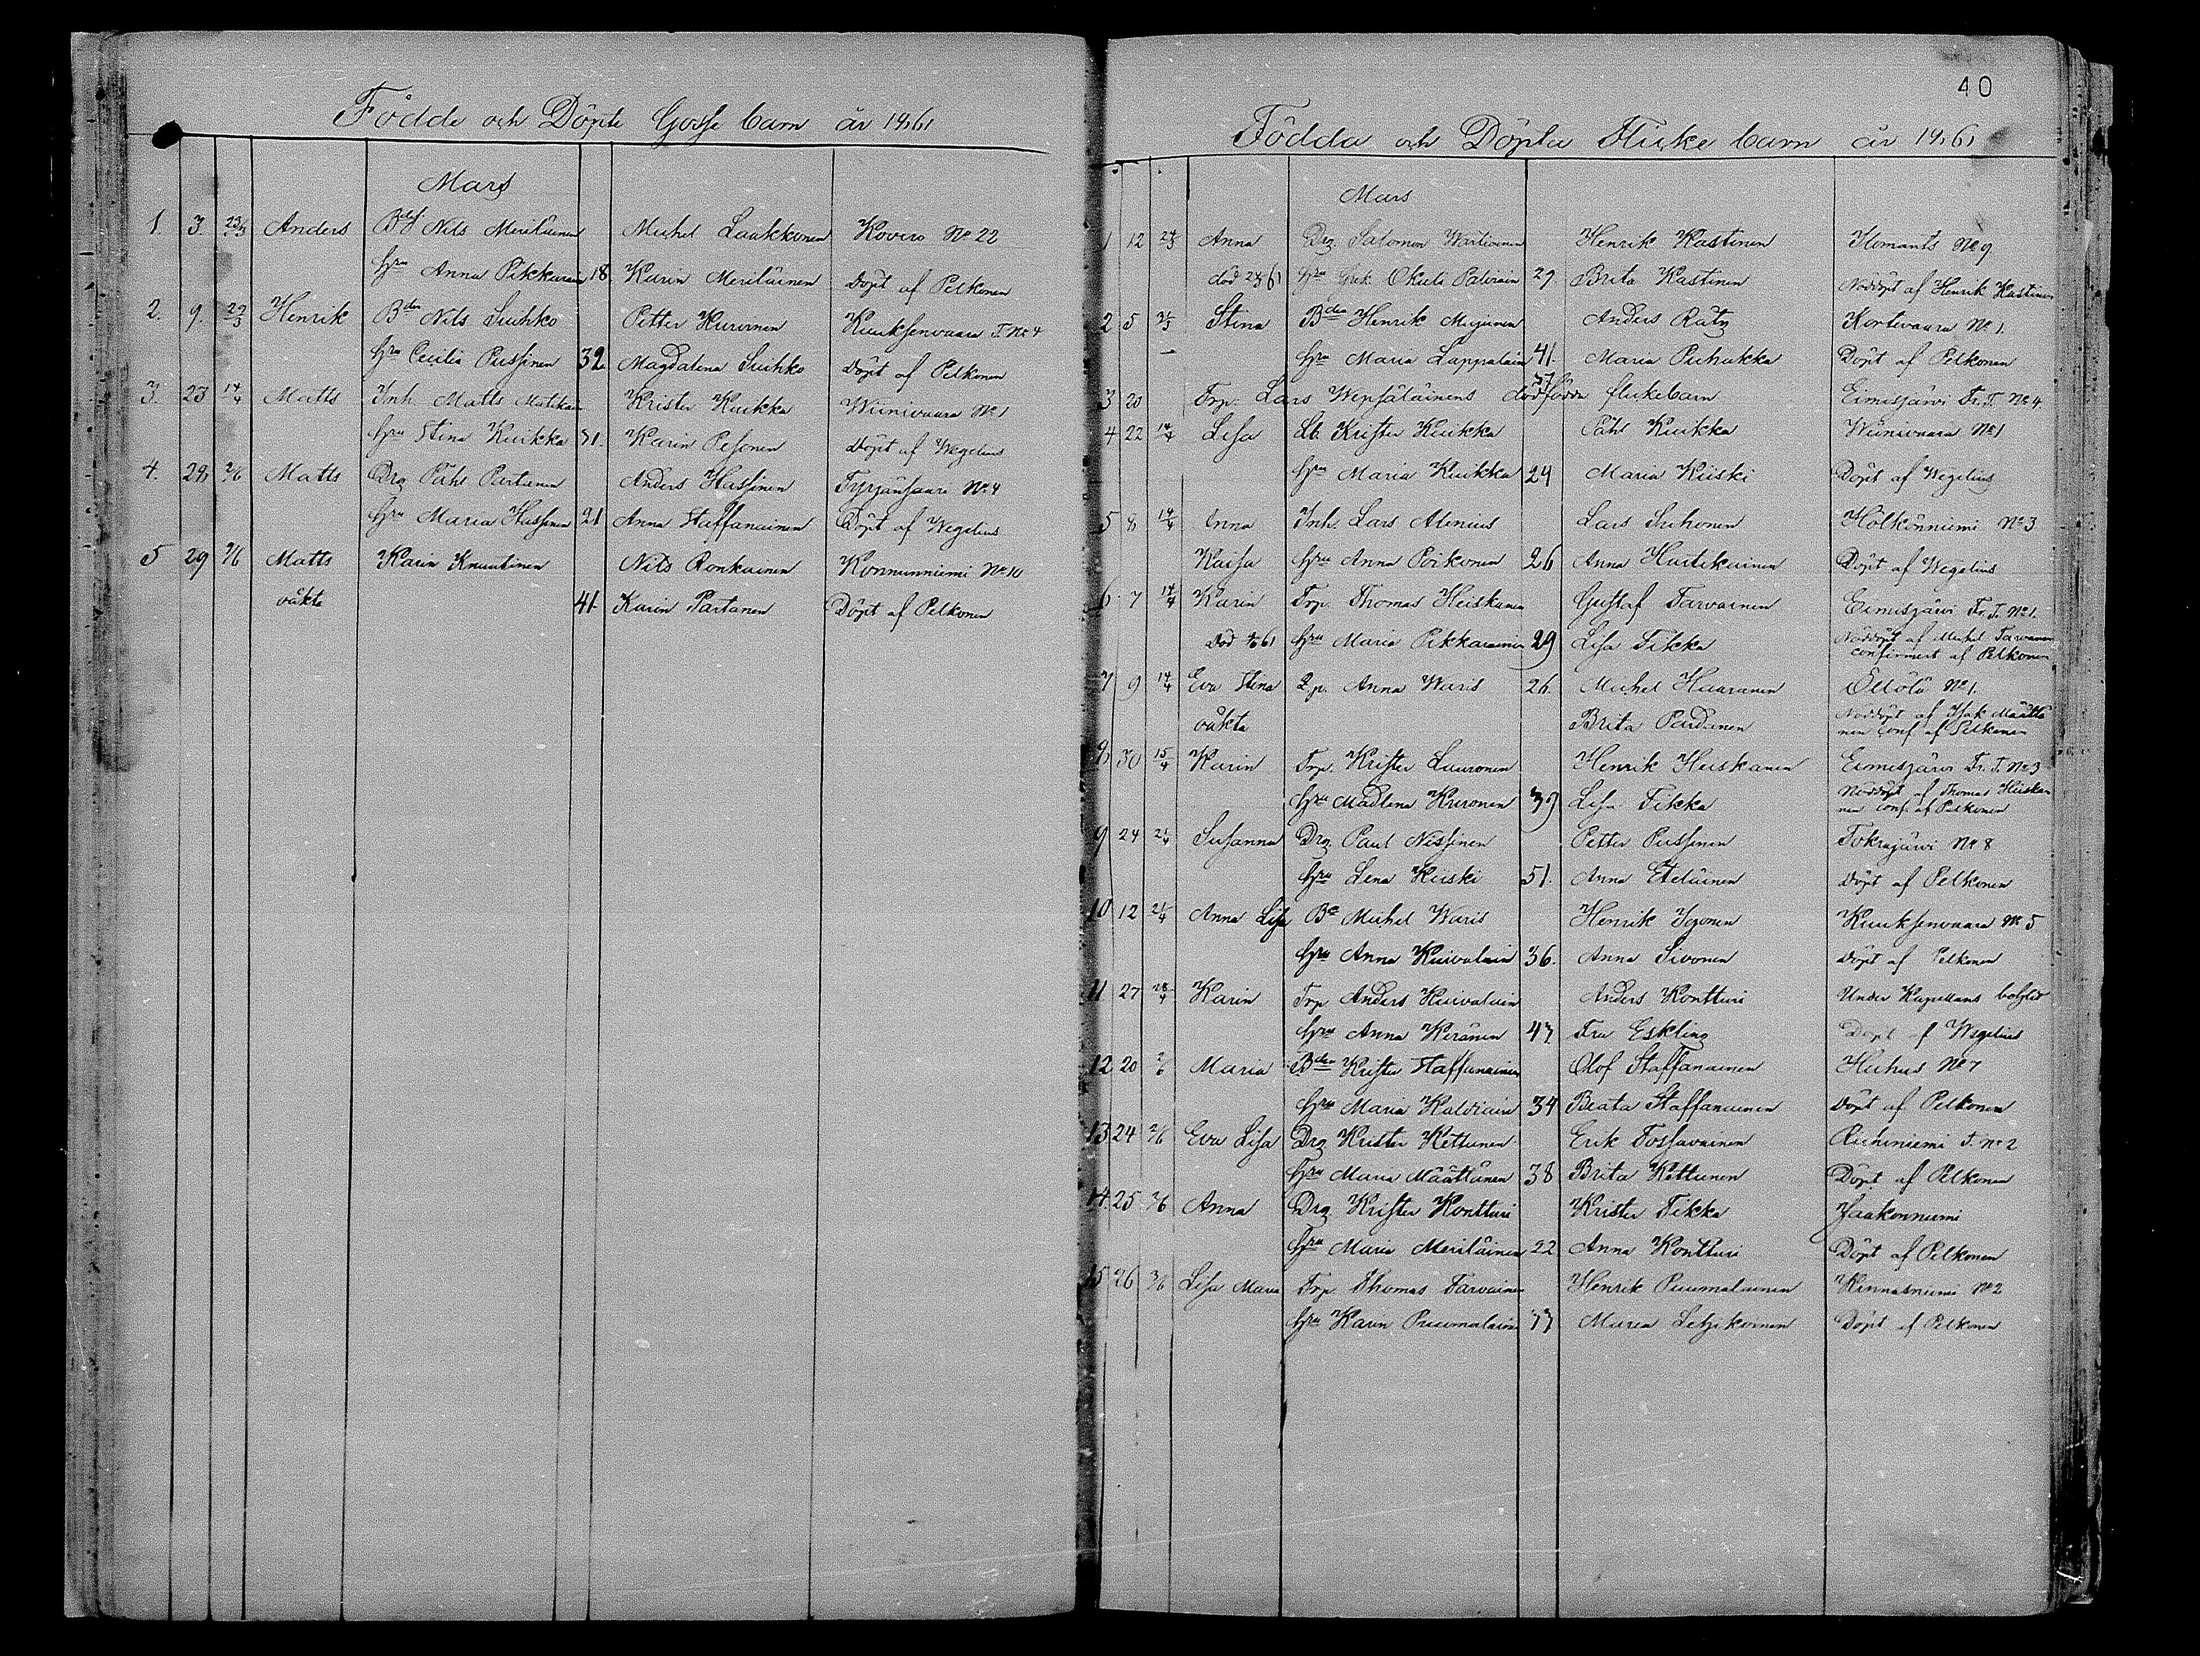 Födde och Döpte Gosse barn år 1861
Mars
1. 3. 23/3 Anders Bd Nils Meriläinen Michel Laakkonen Kovero No 22
hru Anna Pikkarain 18. Karin Meriläinen Döpt af Pelkonen
2. 9. 29/3 Henrik Bden Nils Suhko Petter Kurvinen Kuuksenvaara T. No 4
hru Cecilia Pussinen 32 Magdalena Suhko Döpt af Pelkonen
3. 23 14/4 Matts Inh. Matts Matikai Krister Kuikka Wiinivaara No 1
hru Stina Kuikka 31. Karin Pesonen Döpt af Wegelius
4. 28 2/6 Matts Drg Påhl Partanen Anders Hassinen Tyrjänsaari No 4
hru Maria Hassinen 21 Anna Staffanainen Döpt af Wegelius
5 29 2/6 Matts Karin Knuutinen Nils Ronkainen Konnunniemi No 10
oäkta 41. Karin Partanen Döpt af Pelkonen
40
Födda och Döpta Flicke barn år 1861
Mars
1 12 24/3 Anna Drg Salomon Wartiainen Henrik Kastinen Ilomants No 9
död 24/3 61 hru Palviain 29. Brita Kastinen Nöddöpt af Henrik Kastinen
2 5 31/3 Stina Bden Henrik Mujunen Anders Räty Kortevaara No 1.
hru Maria Lappalain 41. Maria Puhakka Döpt af Pelkonen
37
3 20 Trp. Lars Wepsäläinens dödfödda flickebarn Eimisjärvi Fr. T. No 4
4 22 14/4 Lisa Lb. Krister Kuikka Påhl Kuikka Wiinivaara No 1
hru Maria Kuikka 24 Maria Kiiski Döpt af Wegelius
5 8 14/4 Anna Inh. Lars Alenius Lars Suhonen Hölkönniemi No 3
Kaisa hru Anna Poikonen 26 Anna Huitikainen Döpt af Wegelius
6. 7 14/4 Karin Trp. Thomas Heiskanen Gustaf Tarvainen Eimisjärvi Fr. T. No 1.
död 61 hru Maria Pikkarainen 29 Lisa Tikka Nöddöpt af Michel Tarvainen
confirmert af Pelkonen
7 9 14/4 Eva Stina Qp. Anna Waris 26. Michel Haaranen Öllölä No 1.
oäkta Brita Pardanen Nöddöpt af Isak Määttä
nen conf. af Pelkonen
8. 30 15/4 Karin Trp. Krister Lauronen Henrik Heiskanen Eimisjärvi Fr. T. No 3
hru Madlena Kuronen 39 Lisa Tikka Nöddöpt af Thomas Heiska
nen conf. af Pelkonen
9 24 21/4 Susanna Drg. Paul Nissinen Petter Pussinen Tokrajärvi No 8
hru Lena Kiiski 51. Anna Eteläinen Döpt af Pelkonen
10 12 21/4 Anna Lisa Bd Michel Waris Henrik Igonen Kuuksenvaara No 5
hru Anna Kuivalain 36. Anna Sivonen Döpt af Pelkonen
11 27 28/4 Karin Trp Anders Kuivalain Anders Kontturi Under Kapellans bolstad
hru Anna Keränen 47. Fru Eskling Döpt af Wegelius
12 20 2/6 Maria Bden Krister Staffanainen Olof Staffanainen Huhus No 7
hru Maria Kaldiain 34 Beata Staffanainen Döpt af Pelkonen
13 24 2/6 Eva Lisa Drg Krister Kettunen Erik Tossavainen Riihiniemi T. No 2
hru Maria Määttänen 38 Brita Kettunen Döpt af Pelkonen
14. 25 2/6 Anna Drg. Krister Kontturi Krister Tikka Jaakonniemi
hru Maria Meriläinen 22 Anna Kontturi Döpt af Pelkonen
15 26 3/6 Lisa Maria Trp. Thomas Tarvainen Henrik Puumalainen Kinnasniemi No 2
hru Karin Puumalain 33 Maria Letzikoinen Döpt af Pelkonen